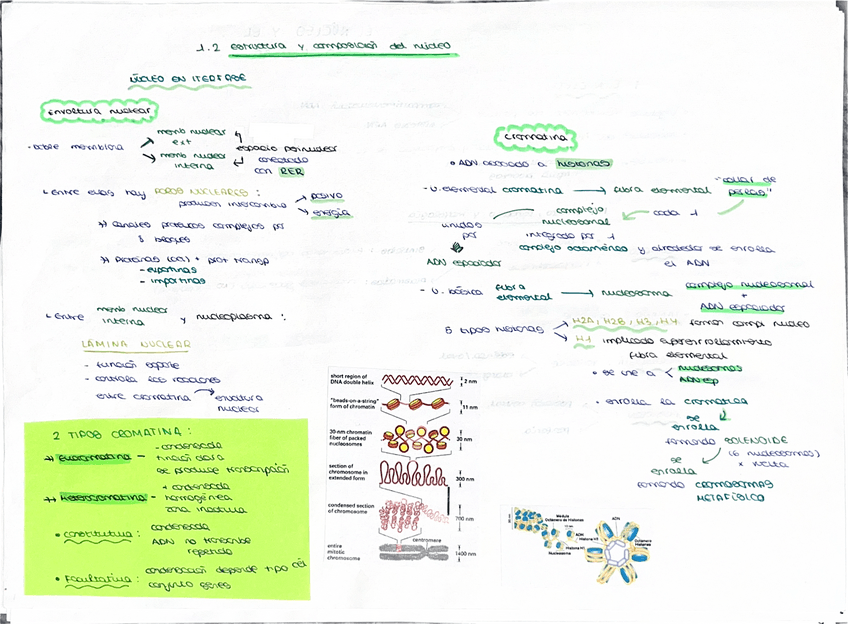 1.2 estructura y composición del núcleo
NÚCLEO EN ITERFASE
Envoltura nuclear
- doble membrana
memb nuclear ext
memb nuclear interna
espacio perinuclear
conectado con RER
entre ellas hay POROS NUCLEARES:
producen intercambio
pasivo
energía
canales proteicos complejos por
3 bloques
Proteínas (cel) + prot transp
- exportinas
- importinas
entre memb nuclear interna y nucleoplasma:
LÁMINA NUCLEAR
- función soporte
- controla las
entre cromatina envoltura nuclear
2 TIPOS CROMATINA:
Eucromatina -
- condensada
tinción clara
se produce transcripción
Heterocromatina -
+ condensada
homogénea
zona inactiva
• constitutiva:
condensada
ADN no transcribe
repetido
• Facultativa:
condensación depende tipo cél
conjunto genes
cromatina
• ADN asociado a histonas
- U. elemental cromatina → fibra elemental
"collar de perlas"
cada 1
complejo nucleosomal
integrado por 1
complejo octamérico y alrededor se enrolla el ADN
unidos por
ADN espaciador
- U. básica fibra elemental → nucleosoma
complejo nucleosomal
+
ADN espaciador
5 tipos histonas
H2A, H2B, H3, H4 forman compl nucleo
H1 implicada superenrollamiento
fibra elemental
• se une a
nucleosomas
ADN esp
• enrolla la cromatina
se enrolla
formando SOLENOIDE
(6 nucleosomas)
x vuelta
se enrolla
formando CROMOSOMAS
METAFÁSICO
short region of
DNA double helix
2 nm
"beads-on-a-string"
form of chromatin
11 nm
30-nm chromatin
fiber of packed
nucleosomes
30 nm
section of
chromosome in
extended form
300 nm
condensed section
of chromosome
700 nm
centromere
entire
mitotic
chromosome
1400 nm
Médula
Octámero de Histonas
ADN
Histona H1
Nucleosoma
ADN
Octámero
Histonas
Histona H1